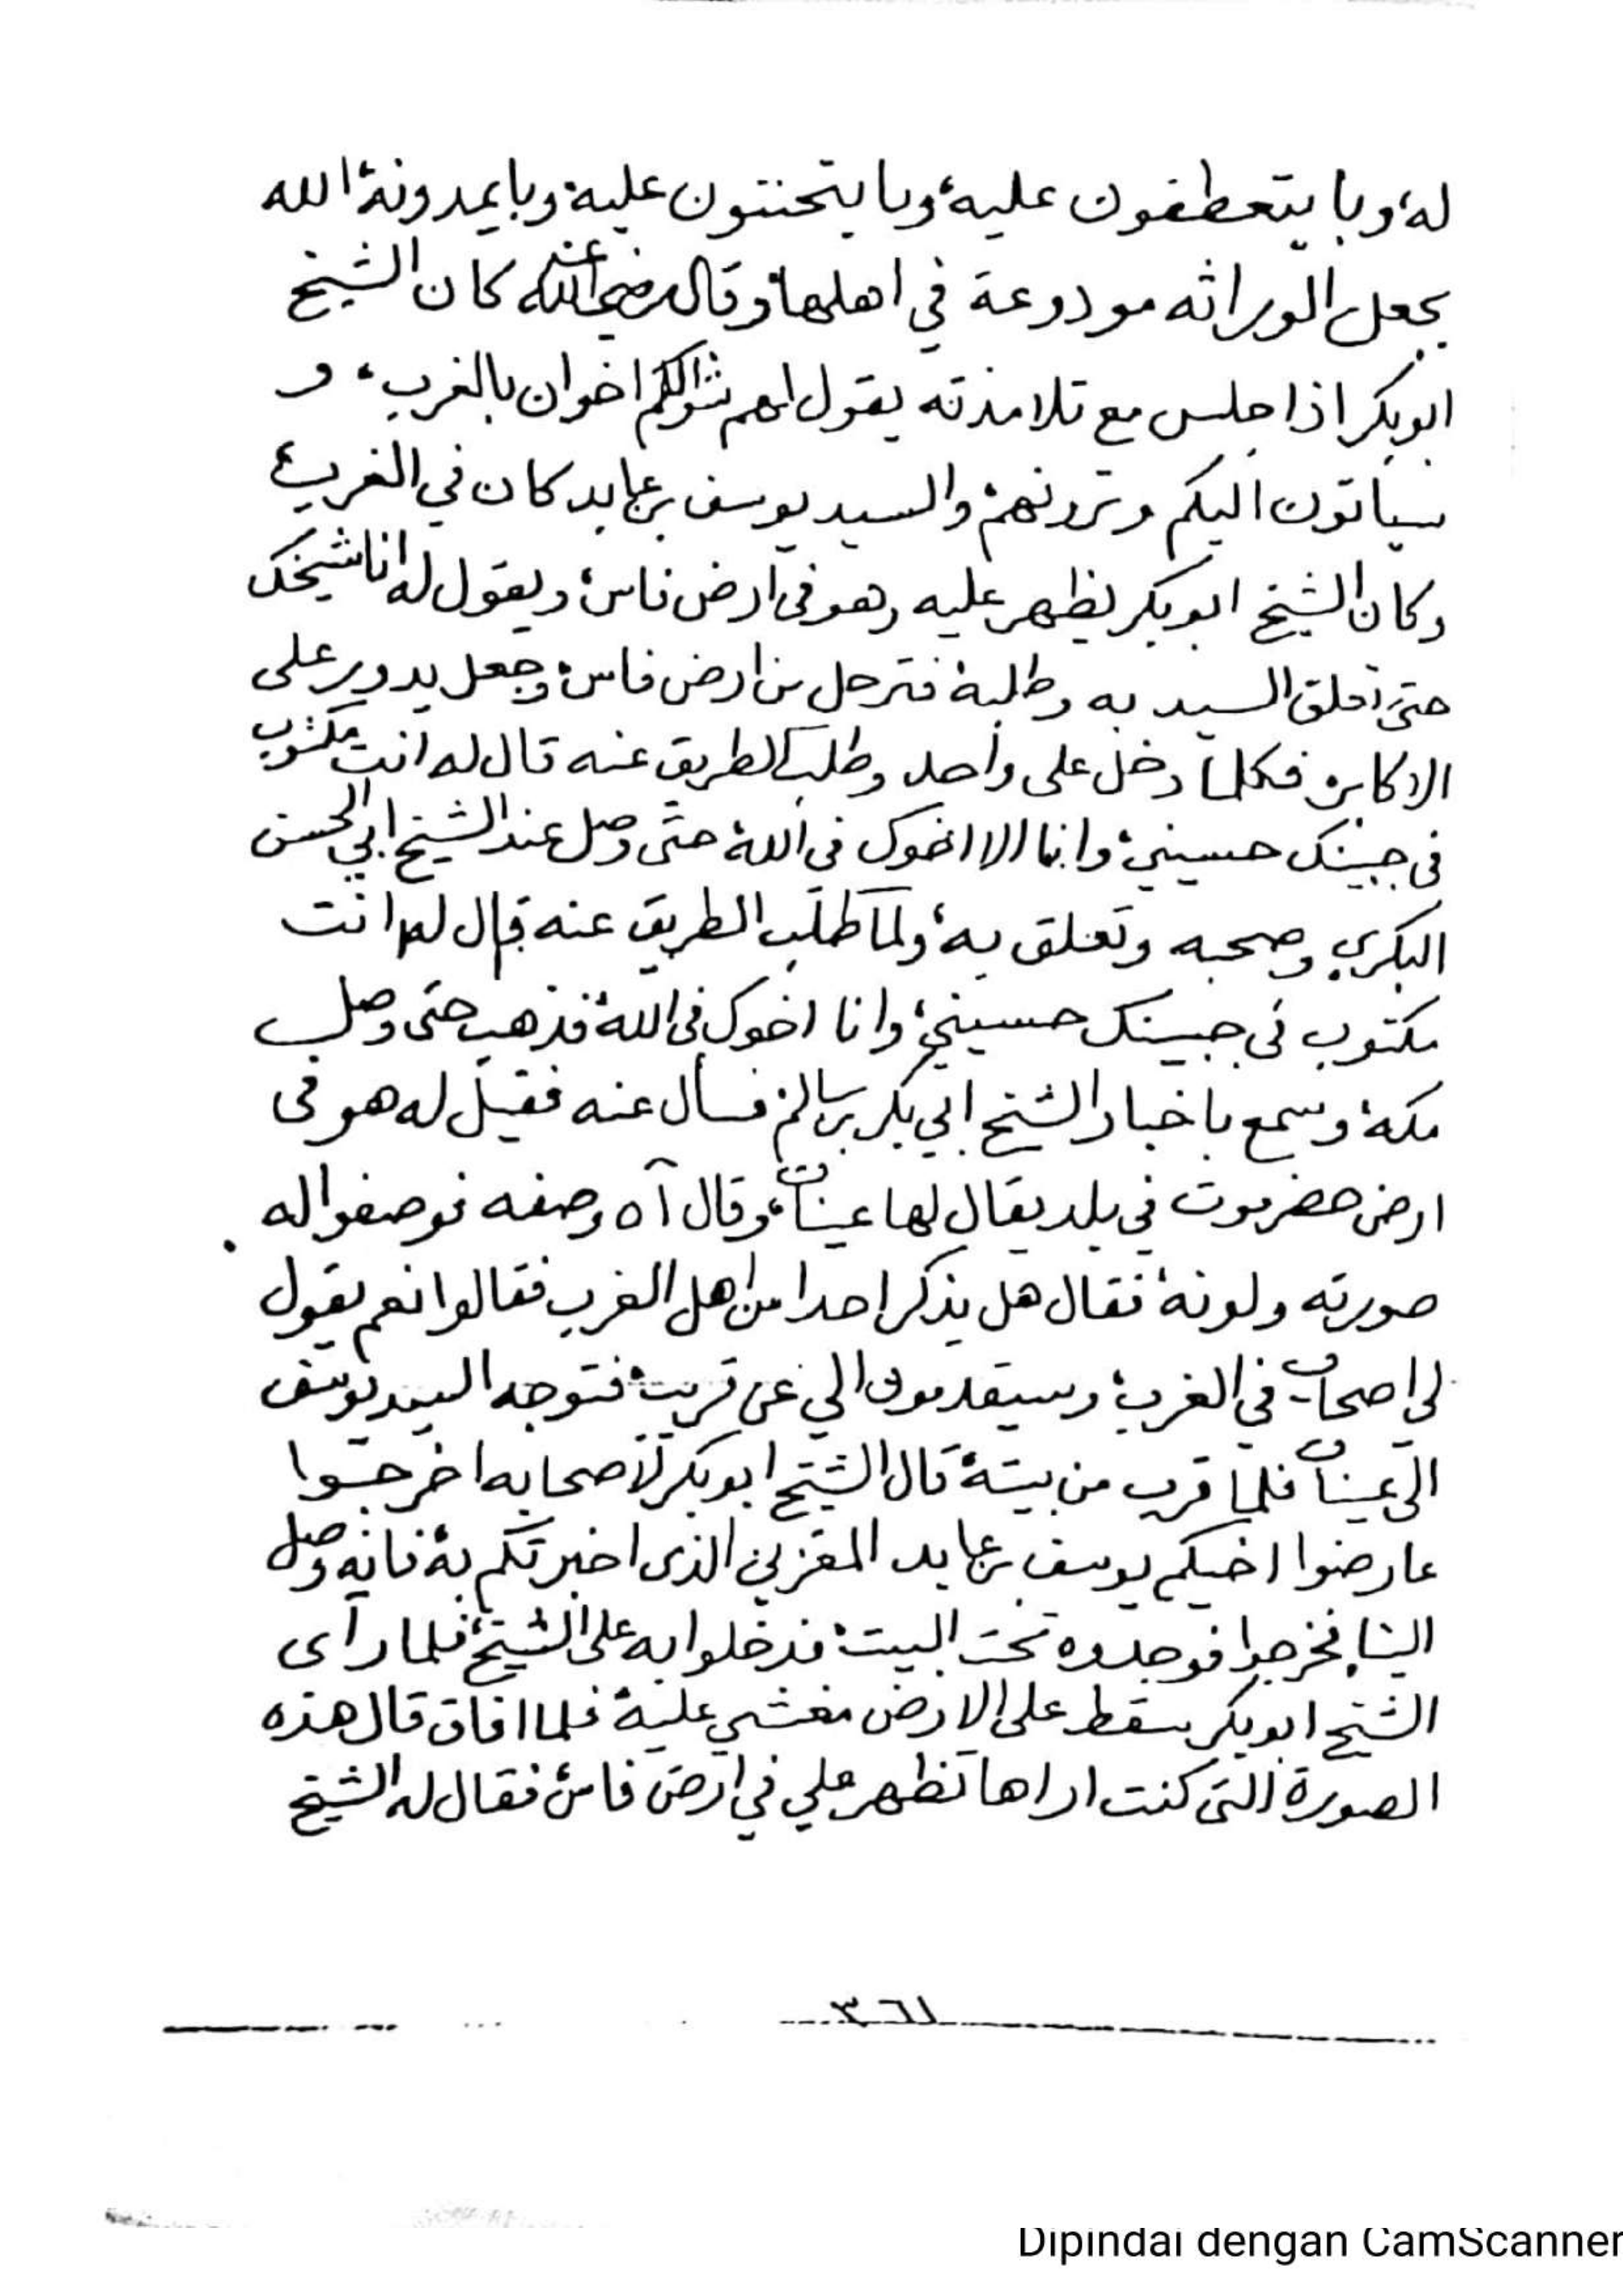 له، وبا يتعطفون عليه، وبا يتحننون عليه، وبا يمدونه، الله
يجعل الوراثه مودوعة في اهلها، وقال رضي الله عنه كان الشيخ
ابوبكر اذا جلس مع تلامذته يقول لهم اخوان بالغرب، و
سياتون اليكم وترونهم، والسيد يوسف بن عابد كان في الغرب،
وكان الشيخ ابوبكر يظهر عليه وهو في ارض فاس، ويقول له انا شيخك
حتى تعلق السيد به وطلبه، فترحل من ارض فاس، وجعل يدور على
الاكابر، فكلما دخل على واحد وطلب الطريق عنه قال له انت مكتوب
في جبينك حسيني، وانما الا اخوك في الله، حتى وصل عند الشيخ ابي الحسن
البكري وصحبه وتعلق به، ولما طلب الطريق عنه قال له انت
مكتوب في جبينك حسيني، وانا اخوك في الله، فذهب حتى وصل
مكة، وسمع باخبار الشيخ ابي بكر بن سالم، فسأل عنه فقيل له هو في
ارض حضرموت في بلد يقال لها عينات، وقال آه وصفه فوصفوا له
صورته ولونه، فقال هل يذكر احدا من اهل الغرب فقالوا نعم يقول
لي اصحاب في الغرب، وسيقدمون الي عن قريب، فتوجه السيد يوسف
الى عينات فلما قرب من بيته، قال الشيخ ابوبكر لأصحابه اخرجوا
عارضوا اخيكم يوسف بن عابد المغربي الذى اخبرتكم به، فانه وصل
الينا، فخرجوا فوجدوه تحت البيت، فدخلوا به على الشيخ، فلما رآى
الشيخ ابوبكر سقط على الارض مغشي عليه، فلما افاق قال هذه
الصورة التى كنت اراها تظهر علي في ارض فاس، فقال له الشيخ
٣٦١
Dipindai dengan CamScanner